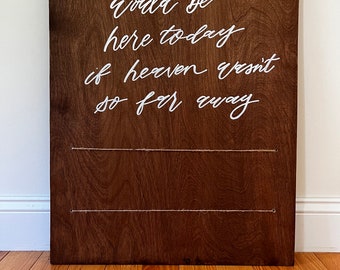 would be
here today
if heaven wasn't
so far away